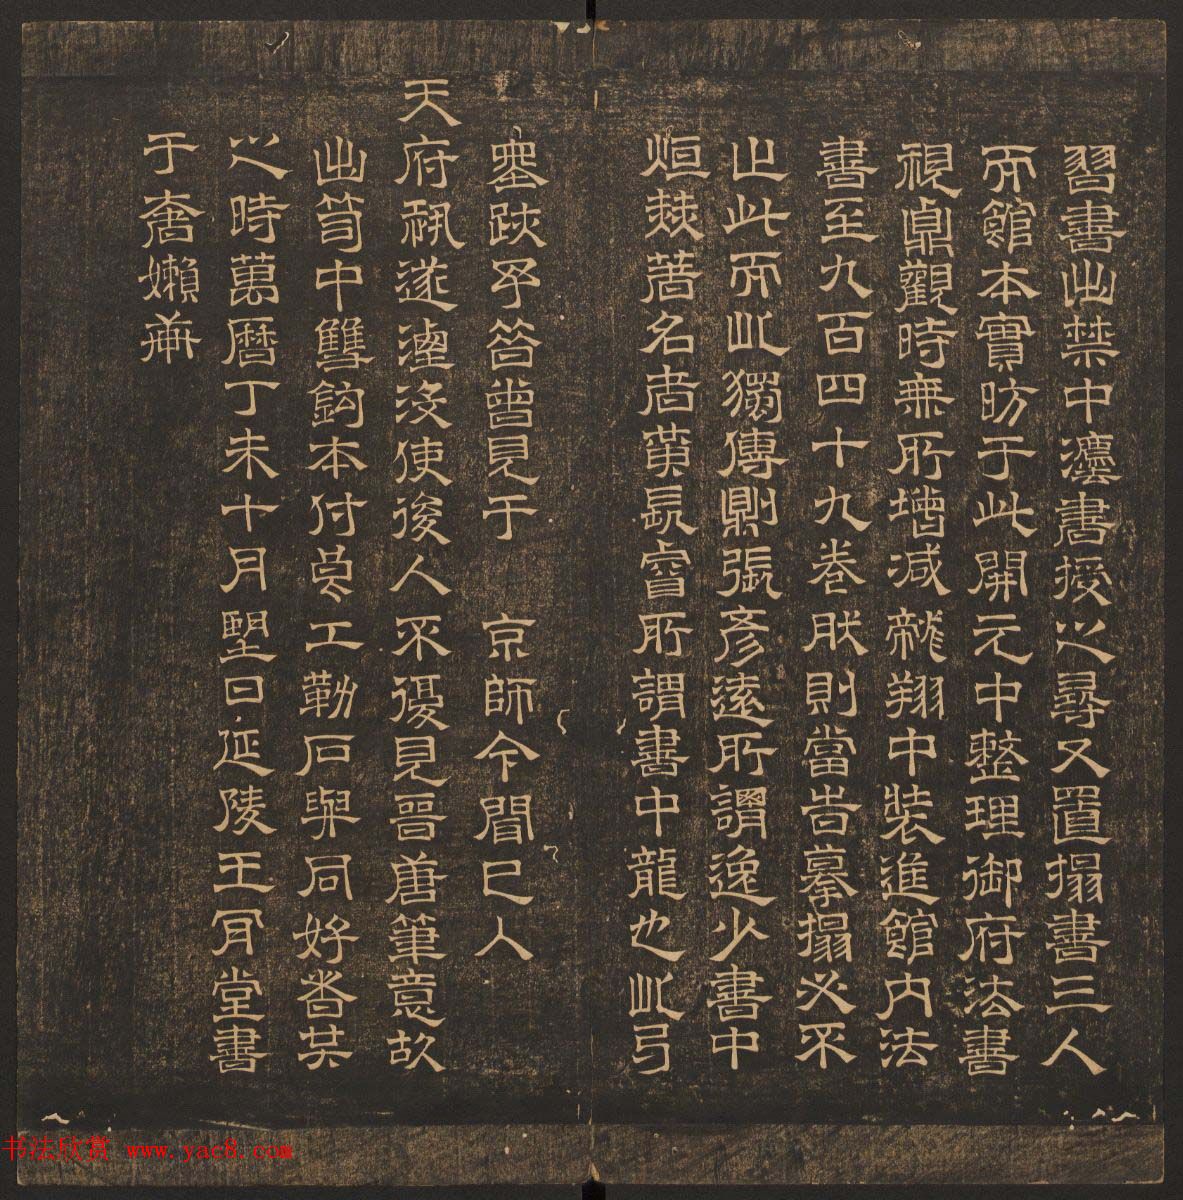 習書出禁中灋書授之尋又置搨書三人
而館本實昉于此開元中整理御府法書
視鼎觀時無所增減龍翔中裝進館內法
書至九百四十九卷狀則當皆摹搨必不
止此而此獨傳鼎張彥遠所謂逸少書中
烜赫著名者黃長睿所謂書中龍也此弓
塾跋予答曾見于 京師今聞已人
天府祕遂湮沒使後人不復見晉唐筆意故
出笥中雙鉤本付 工勒石與同好者共
之時萬曆丁未十月望日延陵王肎堂書
于 嬾
书法欣赏 www.yac8.com